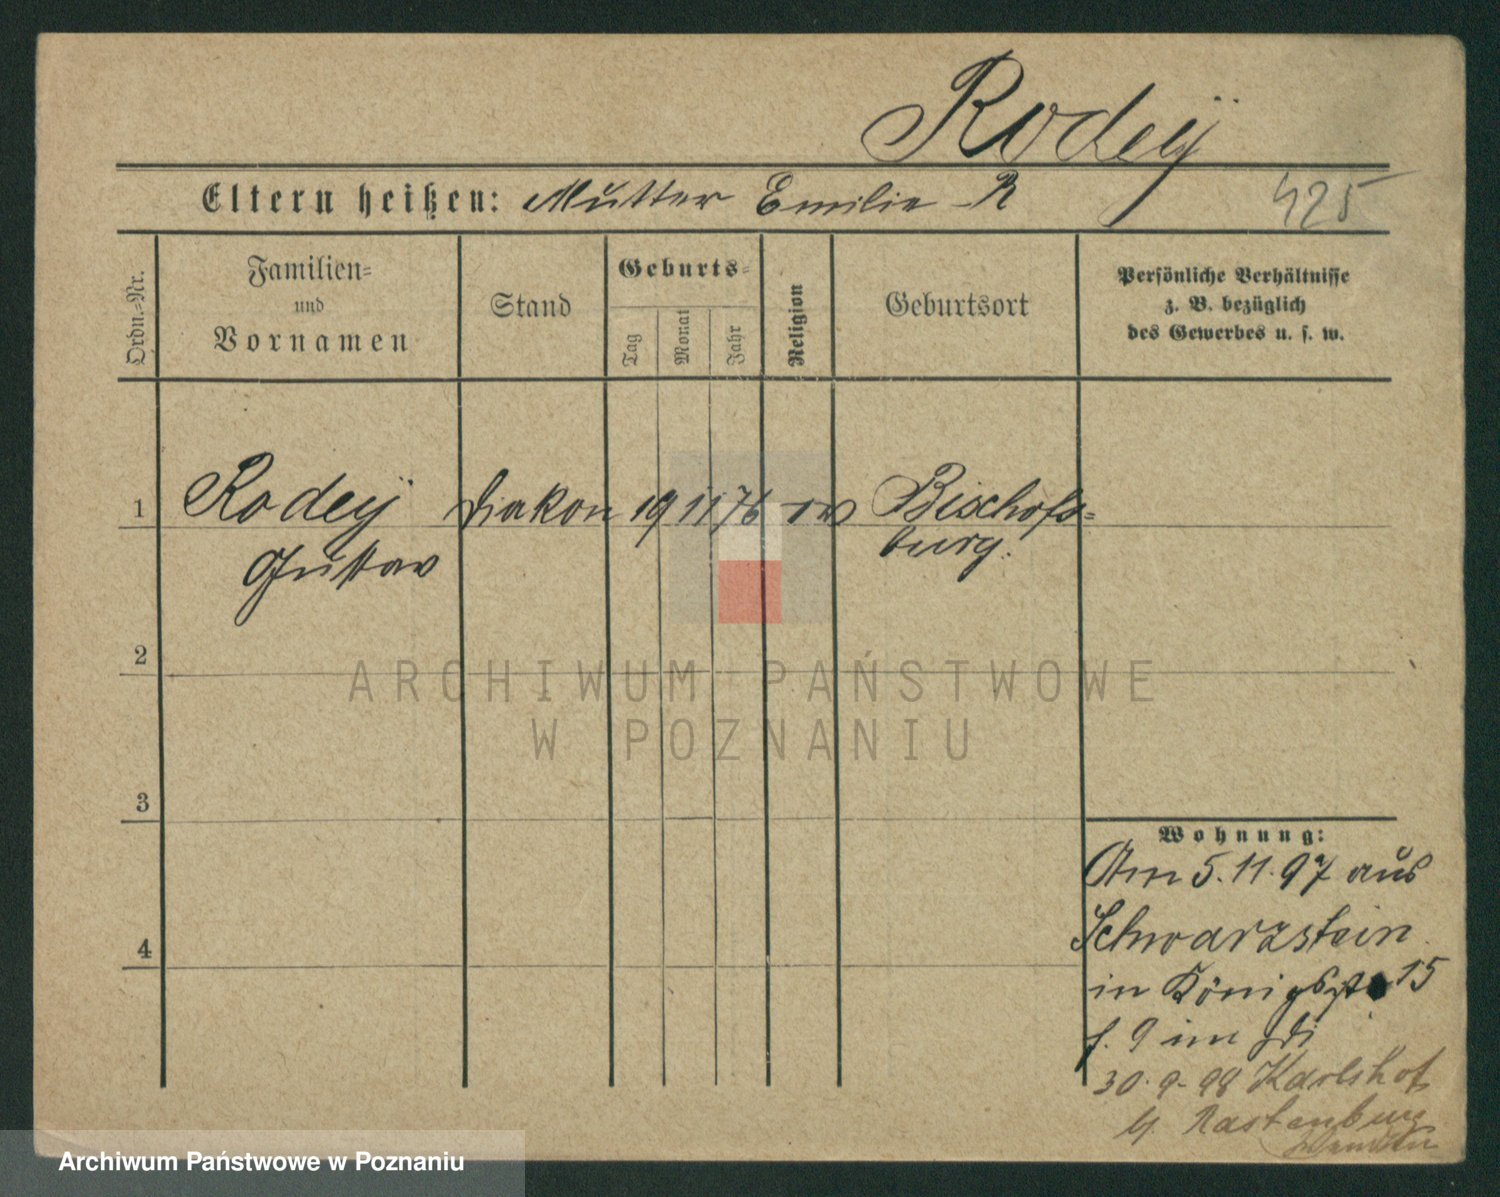 Rodeÿ
Eltern heißen: Mutter Emilie R
425
Ordn.-Nr.
Familien-
und
Vornamen
Stand
Geburts-
Tag
Monat
Jahr
Religion
Geburtsort
Persönliche Verhältnisse
z. B. bezüglich
des Gewerbes u. s. w.
1
Rodeÿ Diakon 19 11 76 ev Bischofs-
Gustav burg.
2
ARCHIWUM PAŃSTWOWE
W POZNANIU
3
4
Wohnung:
Am 5.11.97 aus
Schwarzstein
in Königspl 15
30.9.98 Karlshof
Rastenburg
Archiwum Państwowe w Poznaniu